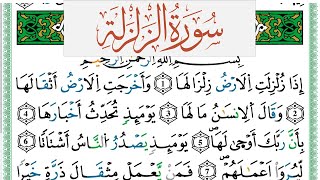 سُورَةُ الزَّلْزَلَةِ
بِسْمِ اللَّهِ الرَّحْمَٰنِ الرَّحِيمِ
إِذَا زُلْزِلَتِ اِ۬لَارْضُ زِلْزَالَهَا ① وَأَخْرَجَتِ اِ۬لَارْضُ أَثْقَالَهَا
② وَقَالَ اَ۬لِانسَٰنُ مَا لَهَا ③ يَوْمَئِذٍ تُحَدِّثُ أَخْبَارَهَا ④
بِأَنَّ رَبَّكَ أَوْحَىٰ لَهَا ⑤ يَوْمَئِذٍ يَصْدُرُ اُ۬لنَّاسُ أَشْتَاتاً ⑥
لِّيُرَوَاْ اَعْمَٰلَهُمْ ⑦ فَمَنْ يَّعْمَلْ مِثْقَالَ ذَرَّةٍ خَيْراً